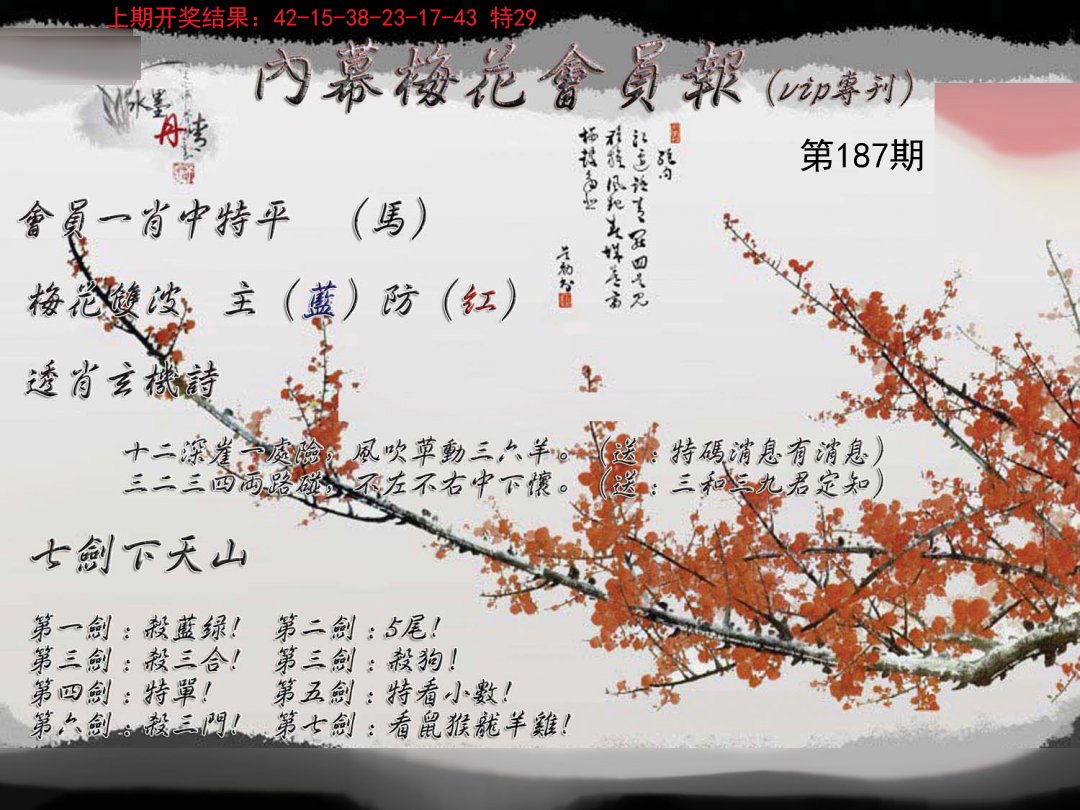 上期开奖结果：42-15-38-23-17-43 特29
內幕梅花會員報（vip專刊）
水墨
丹青
第187期
會員一肖中特平 （馬）
梅花雙波 主（藍）防（红）
透肖玄機詩
十二深崖一處險，風吹草動三六羊。（送：特碼消息有消息）
三二三四両路碰，不左不右中下懷。（送：三和三九君定知）
七劍下天山
第一劍：殺藍绿！ 第二劍：5尾！
第三劍：殺三合！ 第三劍：殺狗！
第四劍：特單！ 第五劍：特看小數！
第六劍：殺三門！ 第七劍：看鼠猴龍羊雞！